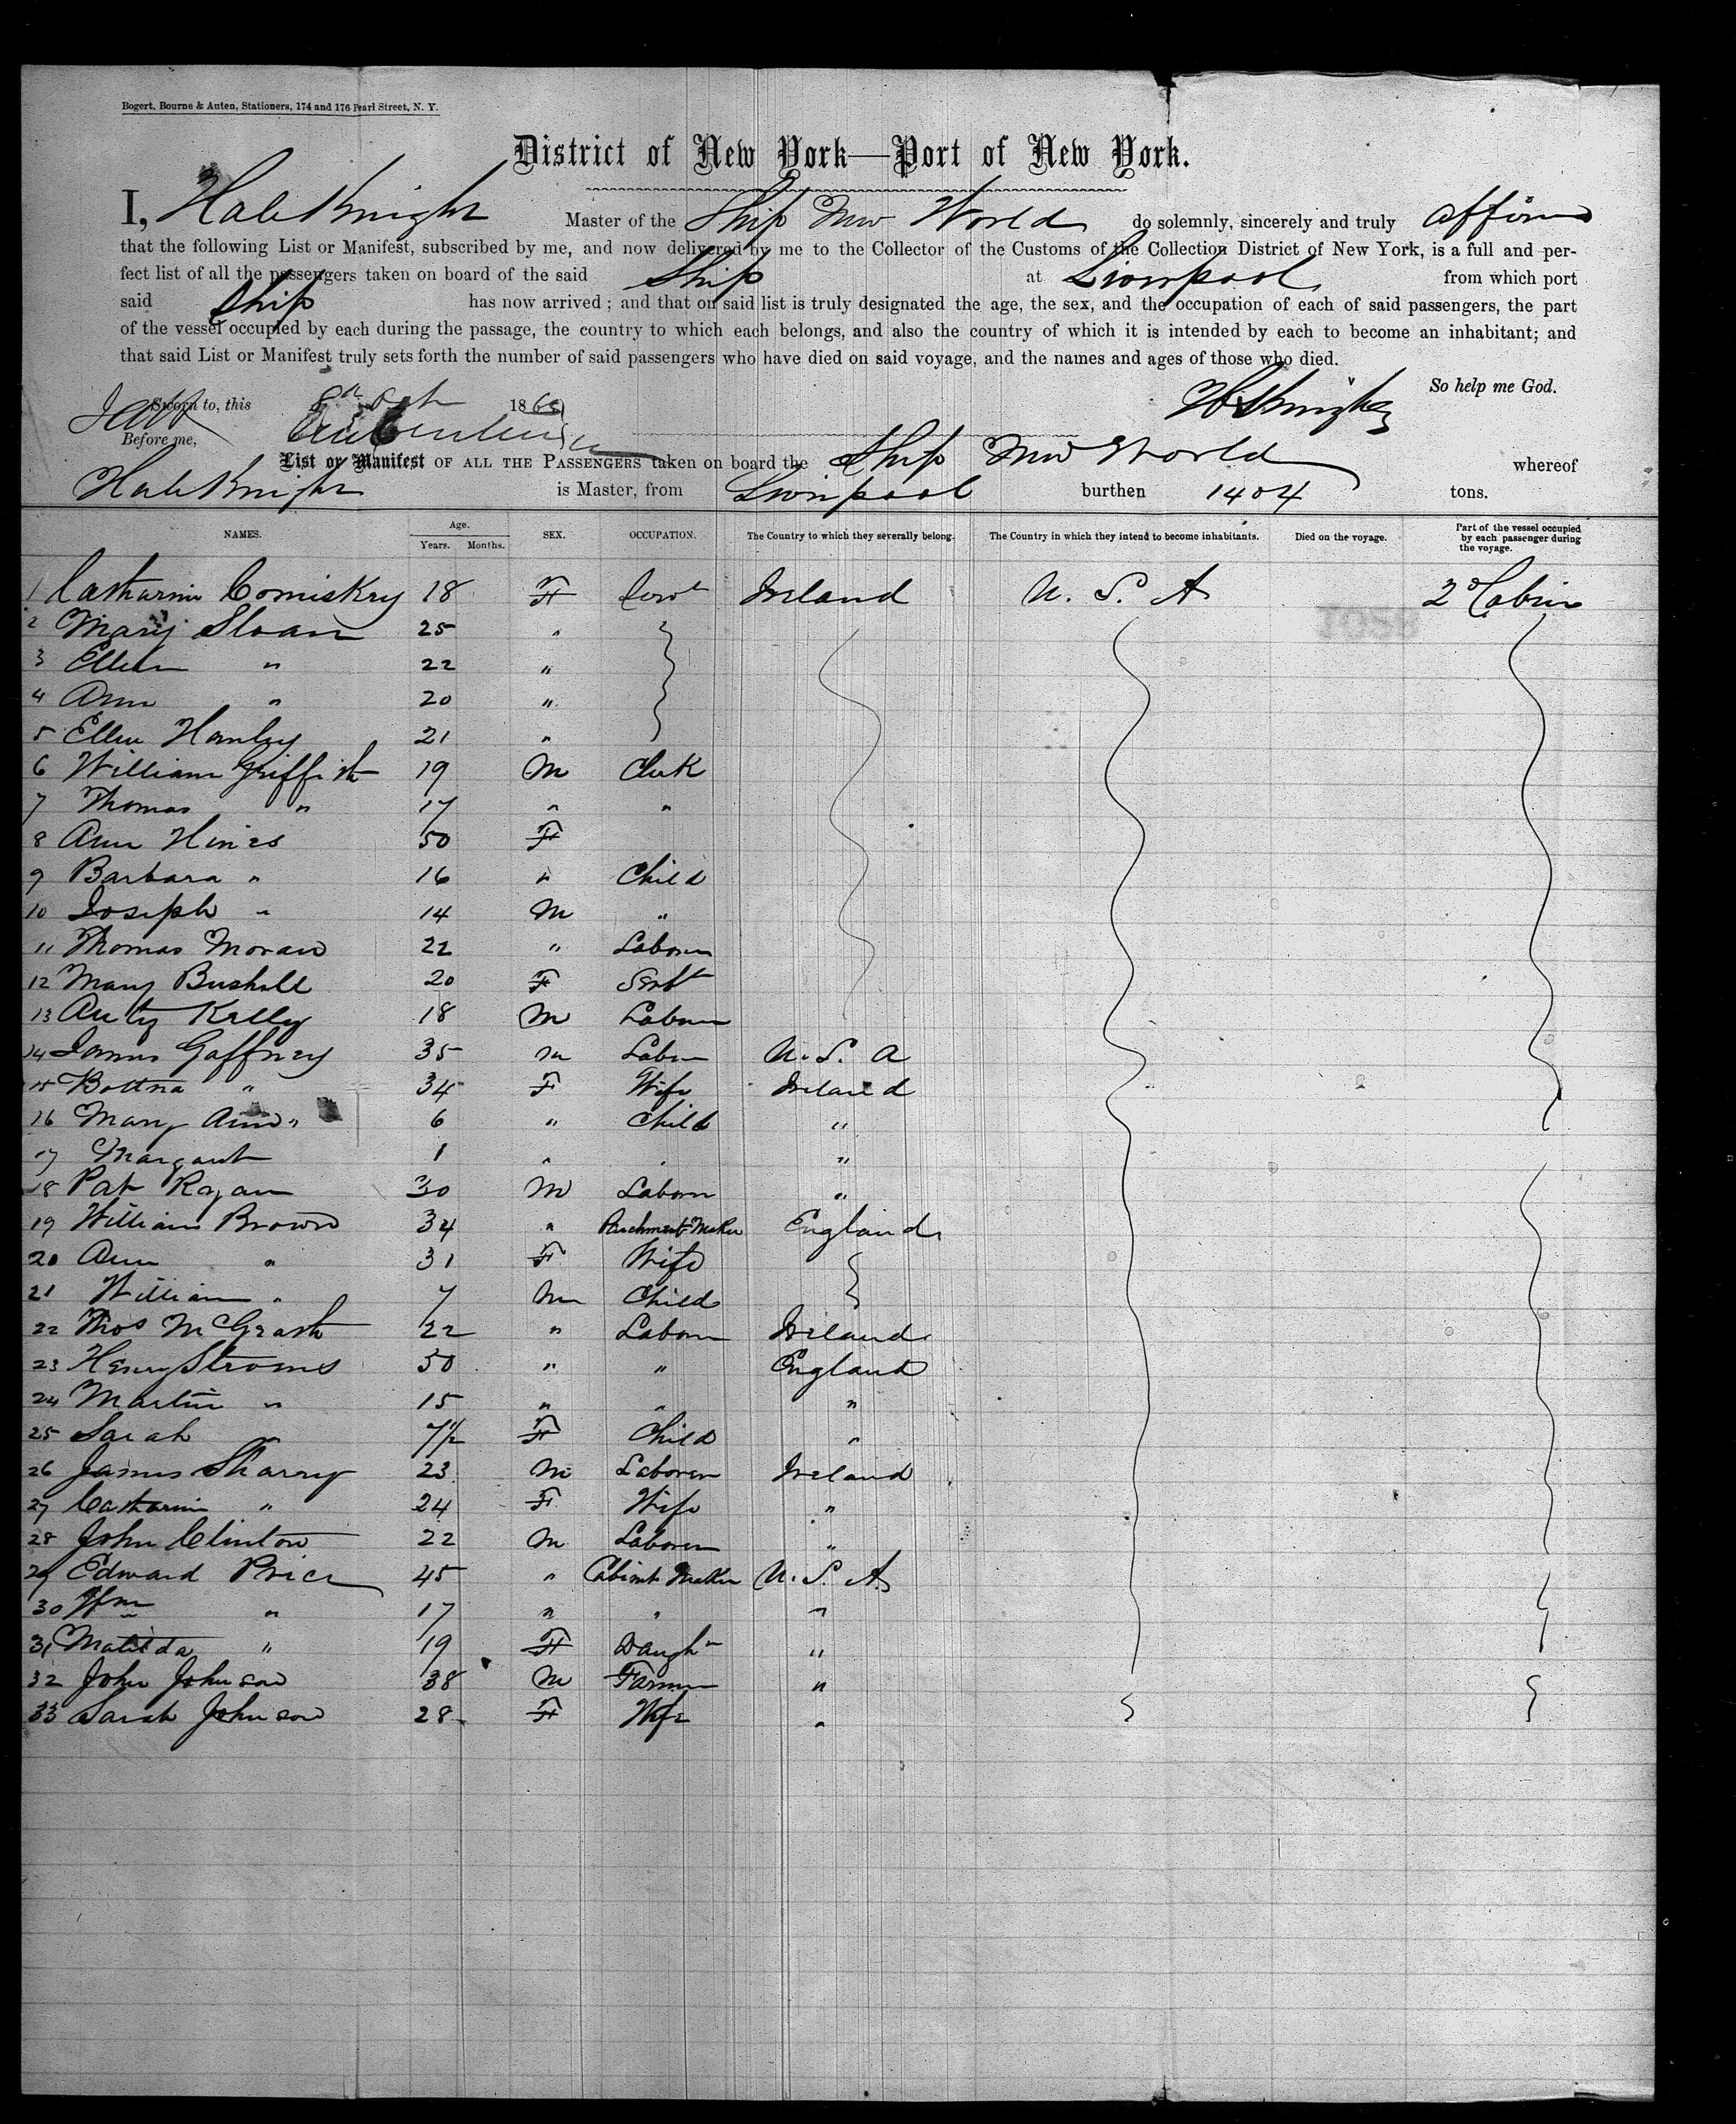 Bogert, Bourne & Auten, Stationers, 174 and 176 Pearl Street, N. Y.
District of New York—Port of New York.
I, Hale Knight Master of the Ship New World do solemnly, sincerely and truly affirm
that the following List or Manifest, subscribed by me, and now delivered by me to the Collector of the Customs of the Collection District of New York, is a full and per-
fect list of all the passengers taken on board of the said Ship at Liverpool from which port
said Ship has now arrived; and that on said list is truly designated the age, the sex, and the occupation of each of said passengers, the part
of the vessel occupied by each during the passage, the country to which each belongs, and also the country of which it is intended by each to become an inhabitant; and
that said List or Manifest truly sets forth the number of said passengers who have died on said voyage, and the names and ages of those who died.
So help me God.
Sworn to, this 8th Oct 186 H Knight
Before me,
List or Manifest OF ALL THE PASSENGERS taken on board the Ship New World whereof
Hale Knight is Master, from Liverpool burthen 1404 tons.
NAMES. Age. Years. Months. SEX. OCCUPATION. The Country to which they severally belong. The Country in which they intend to become inhabitants. Died on the voyage. Part of the vessel occupied by each passenger during the voyage.
1 Catharine Comiskey 18 F Servt Ireland U. S. A 2d Cabin
2 Mary Sloan 25 "
3 Ellen " 22 "
4 Ann " 20 "
5 Ellen Hanley 21 "
6 William Griffith 19 M Clerk
7 Thomas " 17 " "
8 Ann Hines 50 F
9 Barbara " 16 " Child
10 Joseph " 14 M "
11 Thomas Moran 22 " Laborer
12 Mary Bushell 20 F Servt
13 Anty Kelly 18 M Laborer
14 James Gaffney 35 M Labor U. S. A
15 " 34 F Wife Ireland
16 Mary Ann " 6 " Child "
17 Margaret 1 " "
18 Pat Ragan 30 M Laborer "
19 William Brown 34 " Parchment Maker England
20 Ann " 31 F Wife
21 William " 7 M Child
22 Thos McGrath 22 " Laborer Ireland
23 Henry Stroms 50 " " England
24 Martin " 15 " " "
25 Sarah " 7½ F Child "
26 James Sharry 23 M Laborer Ireland
27 Catharine " 24 F Wife "
28 John Clinton 22 M Laborer "
29 Edward Price 45 " Cabinet Maker U. S. A.
30 Wm " 17 " " "
31 Matilda " 19 F Daughr "
32 John Johnson 38 M Farmer "
33 Sarah Johnson 28 F Wife "